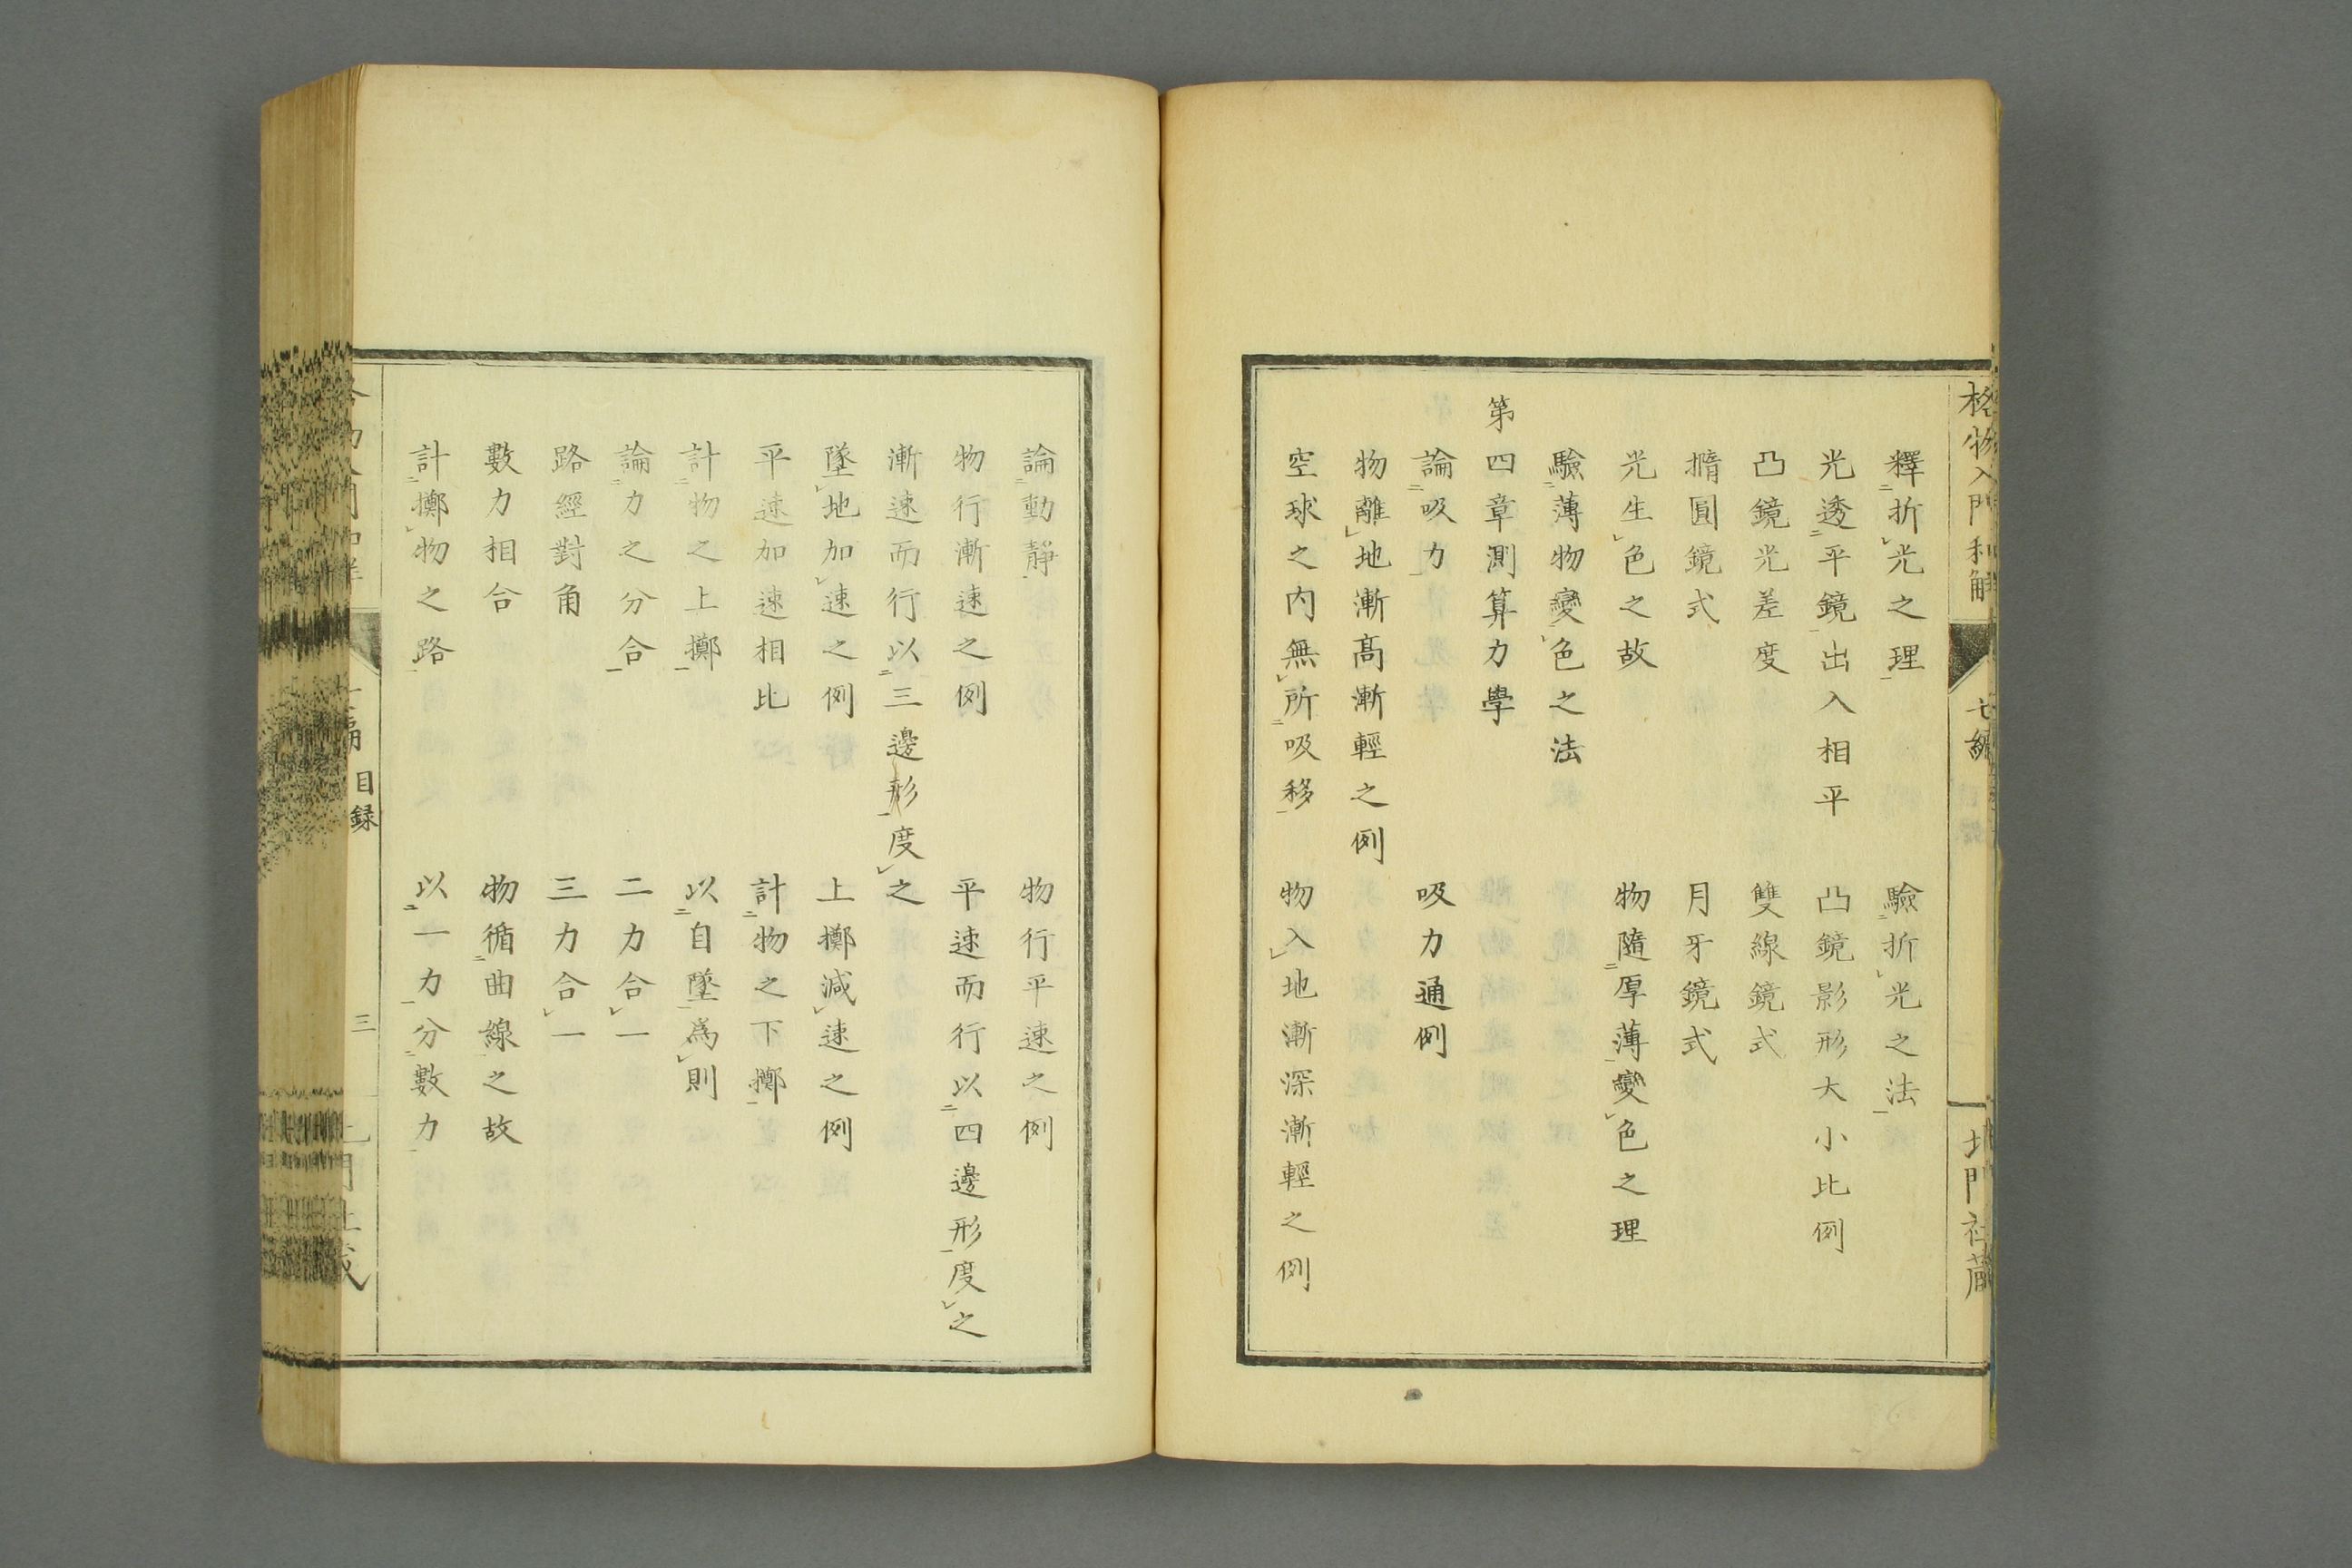 格物入門和解
七編
北門社蔵
釋折光之理 驗折光之法
光透平鏡出入相平 凸鏡影形大小比例
凸鏡光差度 雙線鏡式
撱圓鏡式 月牙鏡式
光生色之故 物隨厚薄變色之理
驗薄物變色之法
第四章測算力學
論吸力 吸力通例
物離地漸髙漸輕之例
空球之内無所吸移 物入地漸深漸輕之例
論動靜 物行平速之例
物行漸速之例 平速而行以四邊形度之
漸速而行以三邊形度之
墜地加速之例 上擲減速之例
平速加速相比 計物之下擲
計物之上擲 以自墜爲則
論力之分合 二力合一
路經對角 三力合一
數力相合 物循曲線之故
計擲物之路 以一力分數力
目録
三